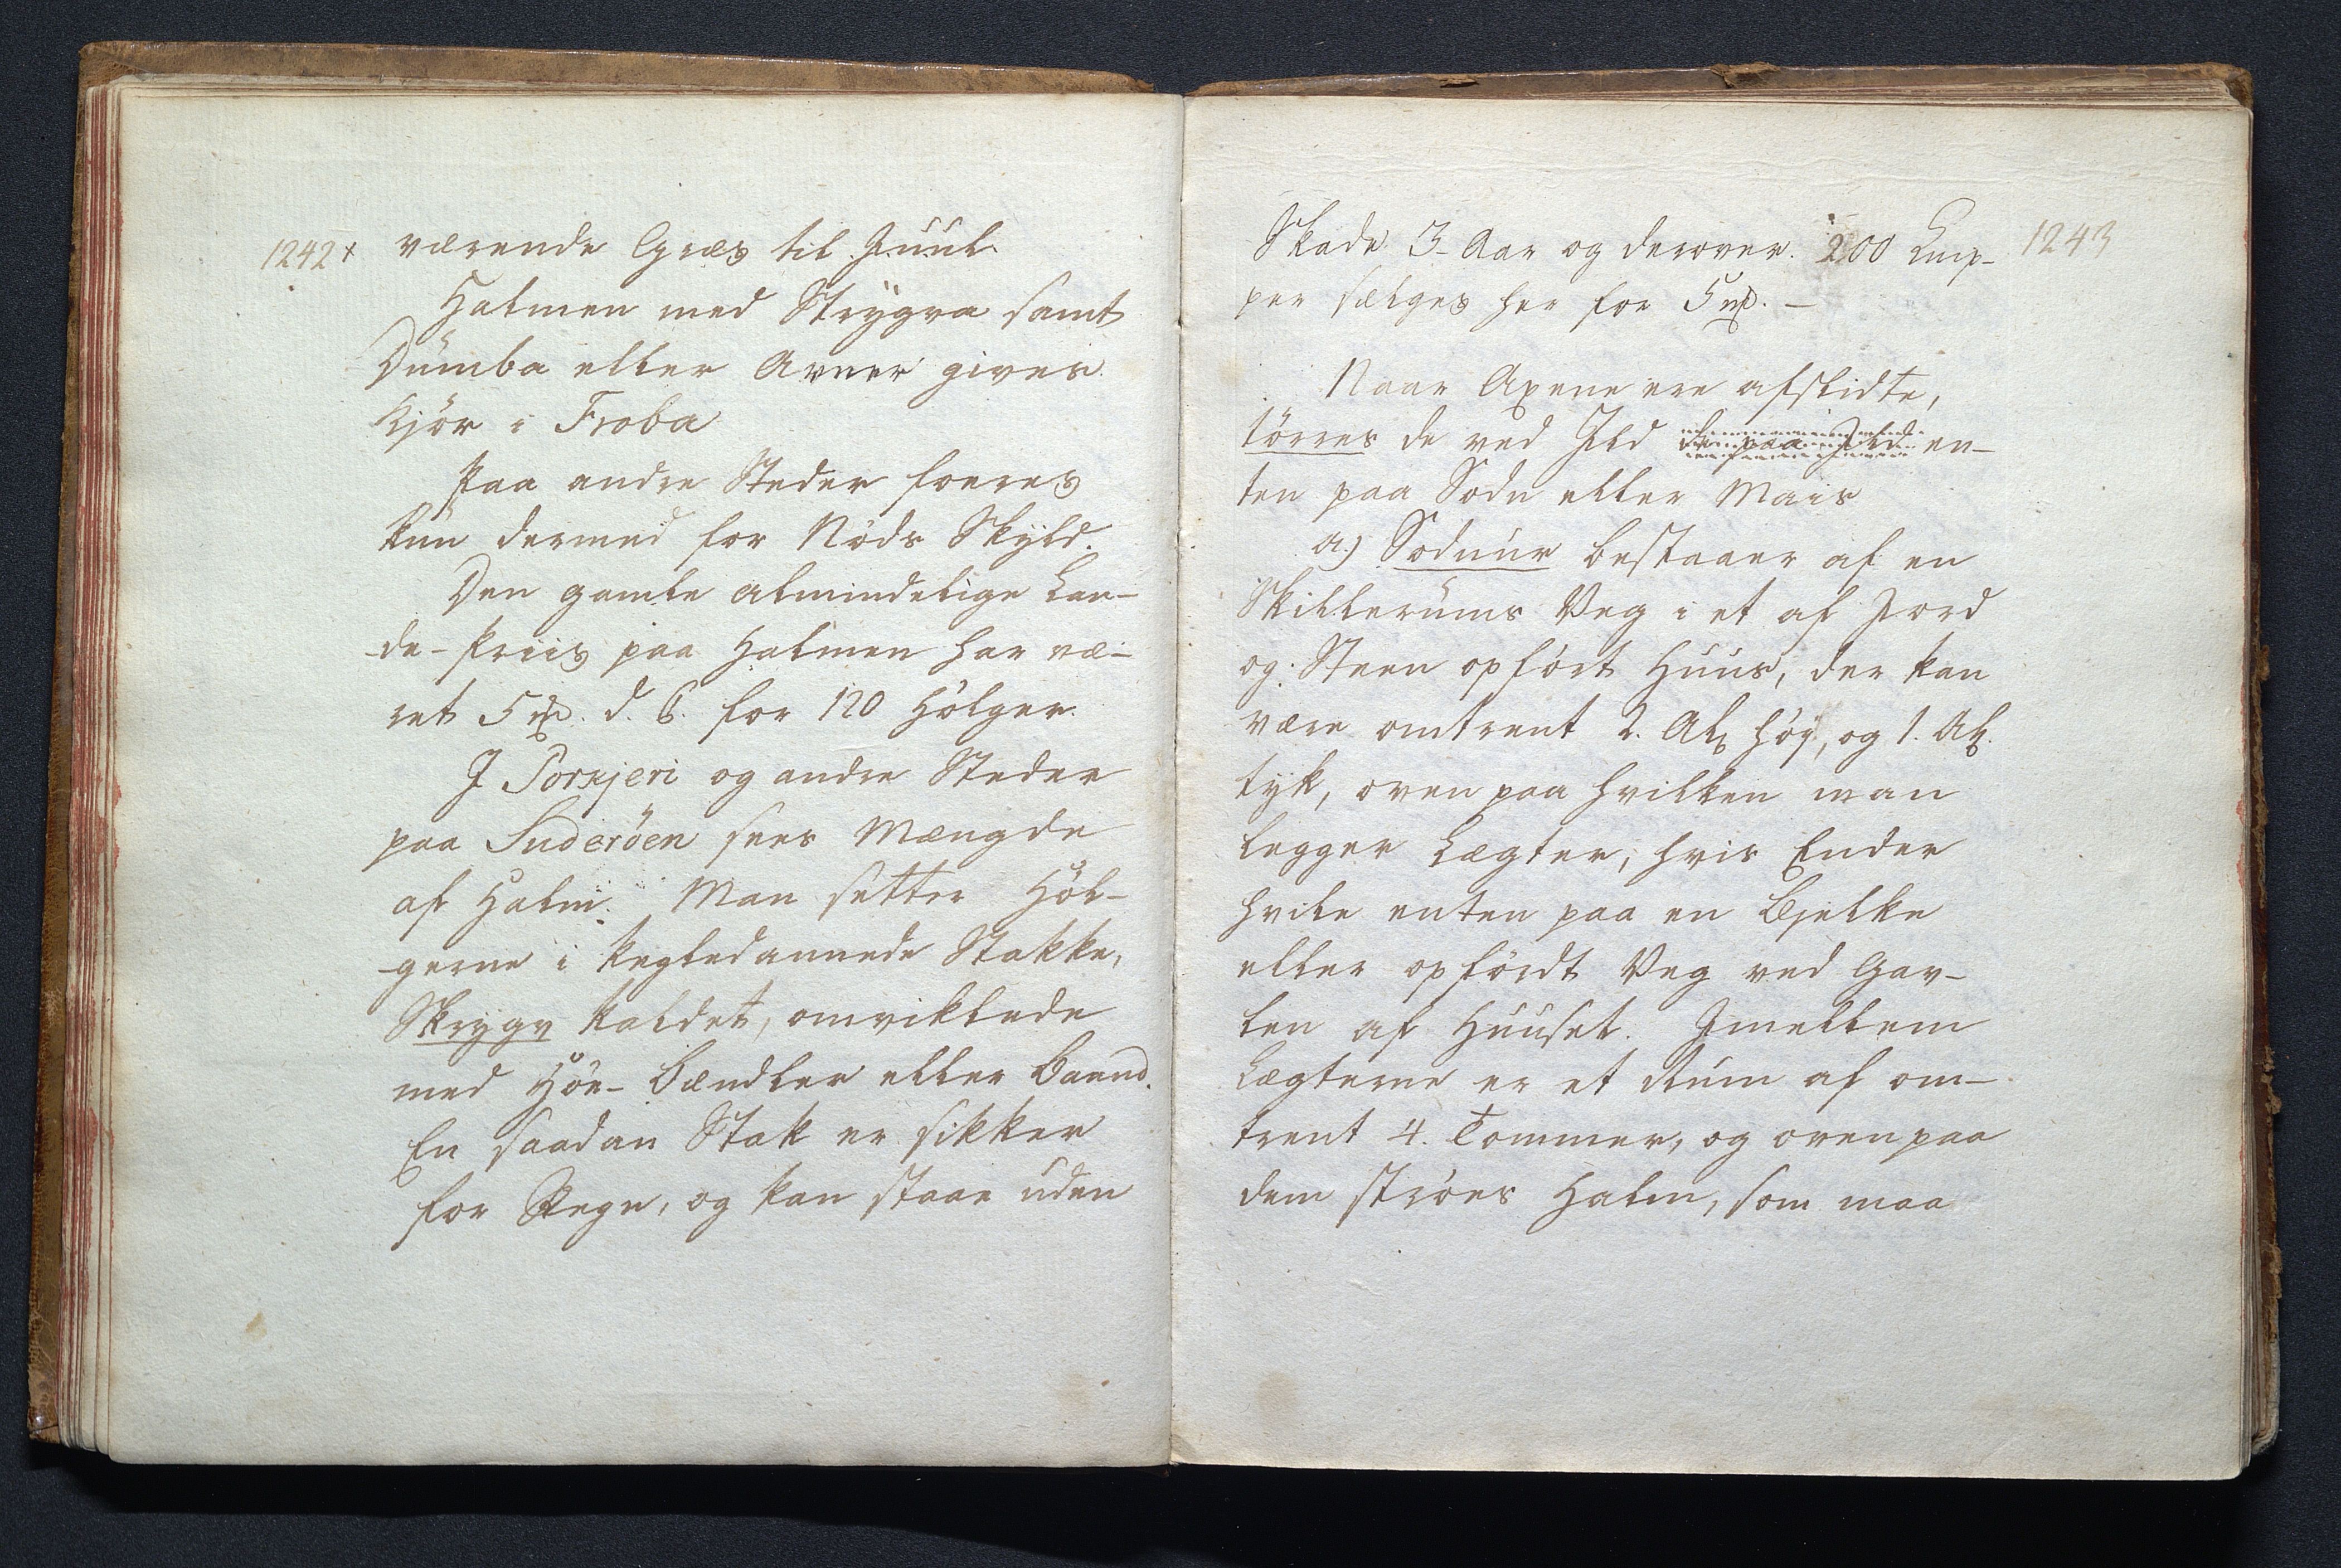 1242 x
værende Græs til Juul.
Halmen med Strygva samt
Dumba eller Avner gives
Kjör i Froba
Paa andre Steder foeres
kun dermed for Nøds Skyld.
Den gamle almindelige Lan-
de-Priis paa Halmen har væ-
ret 5 rd. d. C. for 120 Hölger.
J Porkjeri og andre Steder
paa Suderöen sees Mængde
af Halm. Man setter Höl-
gerne i kegledannede Stakke,
Skrygv kaldet, omviklede
med Höe-Bændler eller Baand.
En saadan Stak er sikker
for Regn, og kan staae uden
1243
Skade 3 Aar og derover. 200 Knip-
per sælges her for 5 rd. -
Naar Axene ere afslidte,
törres de ved Jld de paa Jld en-
ten paa Sodn eller Mais
a) Sodnur bestaaer af en
Skillerums Veg i et af Jord
og Steen opfört Huus, der kan
være omtrent 2. Al. høy, og 1. Al.
tyk, oven paa hvilken man
legger Lægter, hvis Ender
hvile enten paa en Bjelke
eller opfördt Veg ved Gav-
len af Huuset. Jmellem
Lægterne er et Rum af om-
trent 4. Tommer, og oven paa
dem ströes Halm, som maa